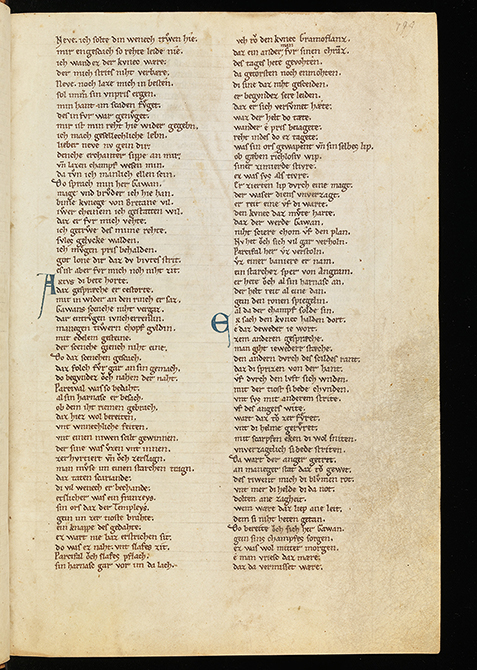 Neve. ich solte din wenech trvwen hie.
mir engeschach so rehte leide nie.
ich wander der kvnec ware.
der mich strits niht verbare.
Neve. noch laze mich in besten.
sol immer sin vnpris ergen.
min hant im scaden fvget.
des in fvr war genvget.
mir ist min reht hie wider gegebn.
ich mach gesellechliche lebn.
lieber neve nv gein dir.
gedenche erchanter sippe an mir.
vn lazen champf wesen min.
da tvn ich manlich ellen sein.
Do sprach min her Gawan.
mage vnd brvder ich hie han.
kvnege von Bretane vil.
iwer cheinem ich gestatten wil.
daz er fvr mich vehte.
ich getrwe des mime rehte.
svles gelvcke walden.
ich mvgen pris behalden.
got lone dir daz dv bivtes strit.
es ist aber fvr mich noch niht zit.
Artvs die bete horte.
daz gesprache er cestorte.
mit in wider an den rinch er saz.
Gawans scenche niht vergaz.
dar entrvgen ivncherrelin.
manegen tiwern chopf gvldin.
mit edelem gesteine.
der scenche giench niht eine.
Do daz scenchen gescach.
daz folch fvr gar an sin gemach.
do begvndez och nahen der naht.
Parcival was so bedaht.
al sin harnasc er besach.
ob dem iht riemen gebrach.
daz hiez er wol bereiten.
vnt wnnechliche feiten.
vnt einen niwen scilt gewinnen.
der sine was vzen vnt innen.
zerhvrtiert vn och zerslagn.
man mvse im einen starchen tragn.
daz taten sariande.
di vil wenech er bechande.
etslicher was ein franzeys.
sin ors daz der templeys.
gein im zer tioste brahte.
ein knappe des gedahte.
ez wart nie baz erstrichen sit.
do was ez naht vnt slafes zit.
Parcifal och slafes pflach.
sin harnasc gar vor im da lach.
och ro den kvnec Gramoflanz.
daz ein ander man fvr sinen chranz.
des tages hete gevohten.
da getorsten noch enmohten.
di sine daz niht gesceiden.
er begvndez sere leiden.
daz er sich versvmet hate.
waz der helt do tate.
wander e pris beiagete.
reht indes do ez tagete.
was sin ors gewapent vn sin selbes lip.
ob gaben richlosiv wip.
siner zimierde stivre.
ez was svs als tivre.
Er zierten lip dvrch eine magt.
der waser diens vnverzagt.
er reit eine vf di warte.
den kvnec daz mvte harte.
daz der werde Gawan.
niht sciere chom vf den plan.
Nv het och sich vil gar verholn.
Parcifal her vz verstoln.
vz einer baniere er nam.
ein starchez sper von Angram.
er hete och al sin harnasc an.
der helt reit al eine dan.
gein den ronen spiegelin.
al da der champf solde sin.
Er sach den kvnec halden dort.
e daz deweder ie wort.
zem anderen gesprache.
man giht iewedere stache.
den andern dvrch des scildes rant.
daz di sprizen von der hant.
vf dvrch den lvft sich winden.
mit der tiost si bede chvnden.
vnt svs mit anderem strite.
vf des angers wite.
wart daz to zerfvret.
vnt di helme gervret.
mit scarpfen eken di wol sniten.
vnverzagetlich si bede striten.
Da wart der anger getret.
an maneger stat daz to gewet.
des riwent mich di blvmen rot.
vnt mer di helde di da not.
dolten ane zageheit.
wem ware daz liep ane leit.
dem si niht heten getan.
Do bereite och sich her Gawan.
gein sins champfes sorgen.
ez was wol mitter morgen.
e man vriesc daz mare.
daz da vermisset ware.